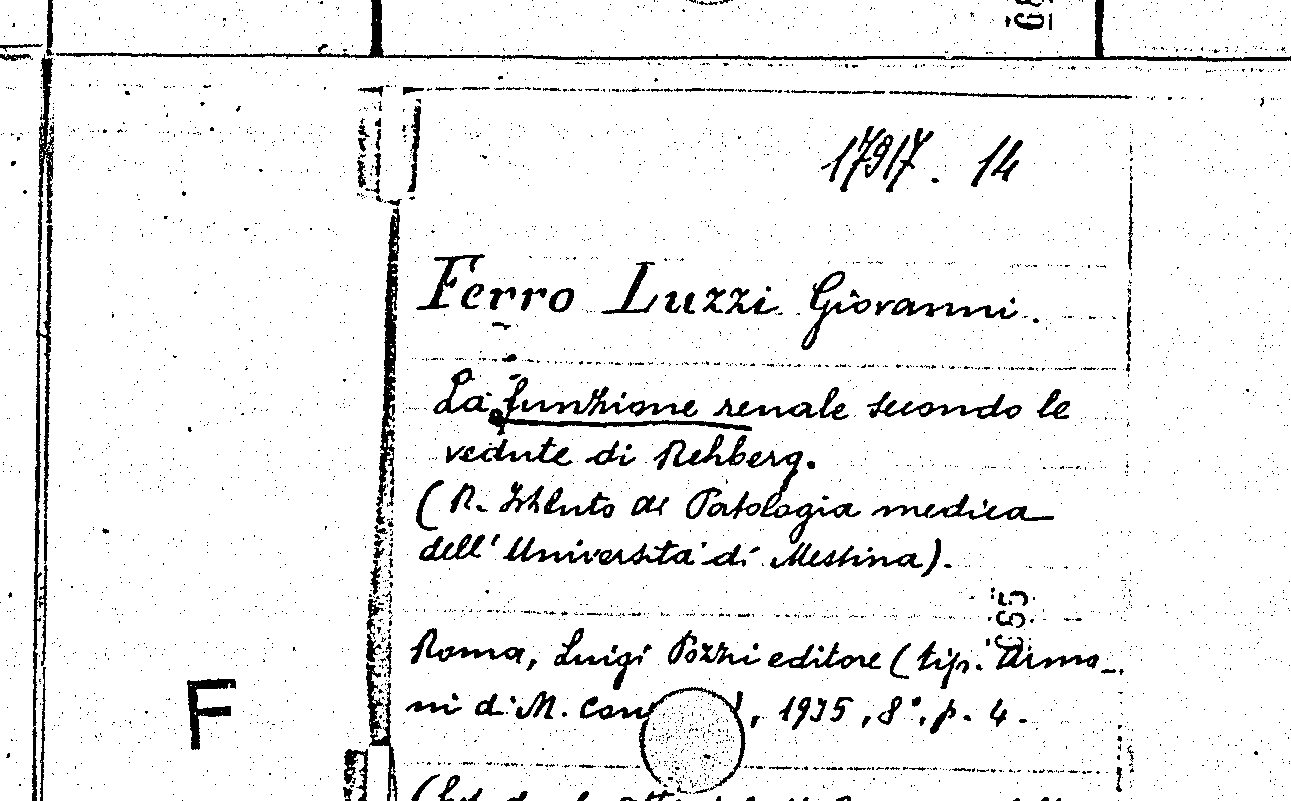 17917. 14
Ferro Luzzi Giovanni.
La funzione renale secondo le
vedute di Rehberg.
(R. Istituto di Patologia medica
dell' Università di Messina).
655
Roma, Luigi Pozzi editore (tip. Arma-
ni di M. , 1935, 8°, p. 4.
F